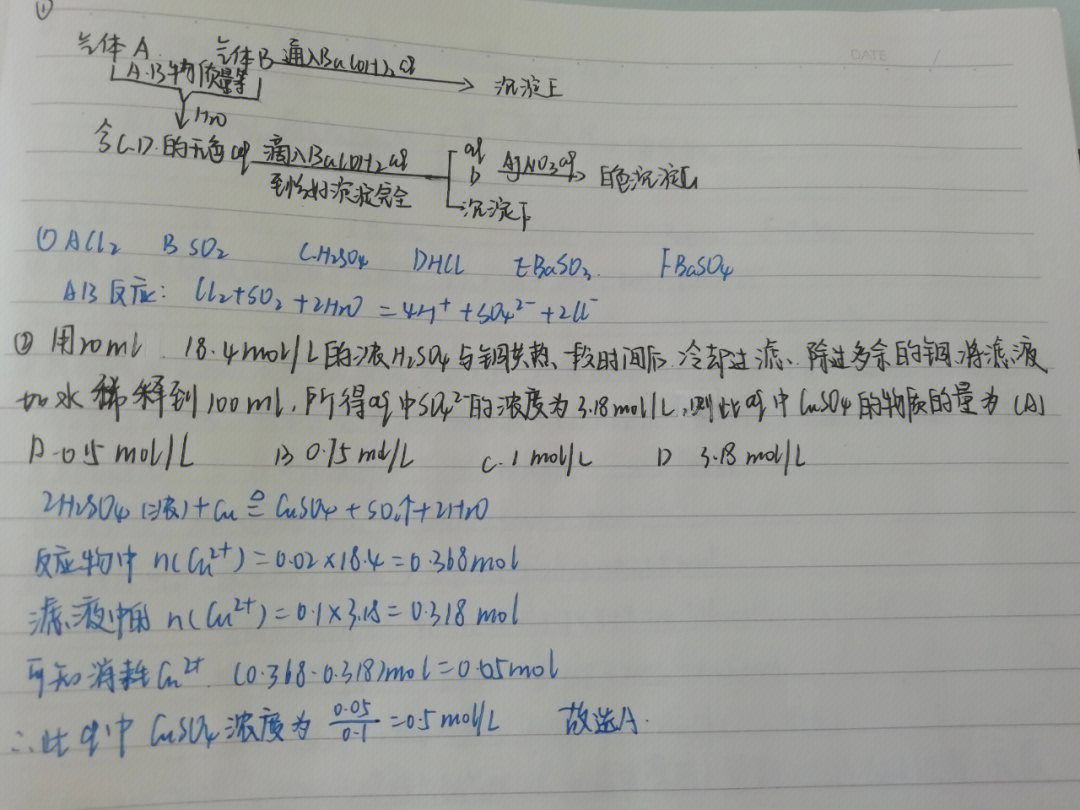 ①
DATE /
气体A 气体B 通入Ba(OH)₂aq 沉淀E
A.B物质量等
H₂O
含C.D.的无色aq 滴入Ba(OH)₂aq aq AgNO₃aq 白色沉淀
至恰好沉淀完全 D
沉淀F
(1) A Cl₂ B SO₂ C.H₂SO₄ D HCl E BaSO₃. F BaSO₄
AB反应: Cl₂+SO₂+2H₂O=4H⁺+SO₄²⁻+2Cl⁻
② 用20ml 18.4mol/L的浓H₂SO₄与铜共热、一段时间后、冷却过滤、除过多余的铜,将滤液
加水稀释到100ml,所得aq中SO₄²⁻的浓度为3.18mol/L,则此aq中CuSO₄的物质的量为(A)
A.0.5mol/L B 0.75mol/L C.1mol/L D 3.18mol/L
2H₂SO₄(浓)+Cu≜CuSO₄+SO₂↑+2H₂O
反应物中n(Cu²⁺)=0.02×18.4=0.368mol
滤液中的n(Cu²⁺)=0.1×3.18=0.318mol
可知消耗Cu²⁺ (0.368-0.318)mol=0.05mol
∴此aq中CuSO₄浓度为0.05/0.1=0.5mol/L 故选A.